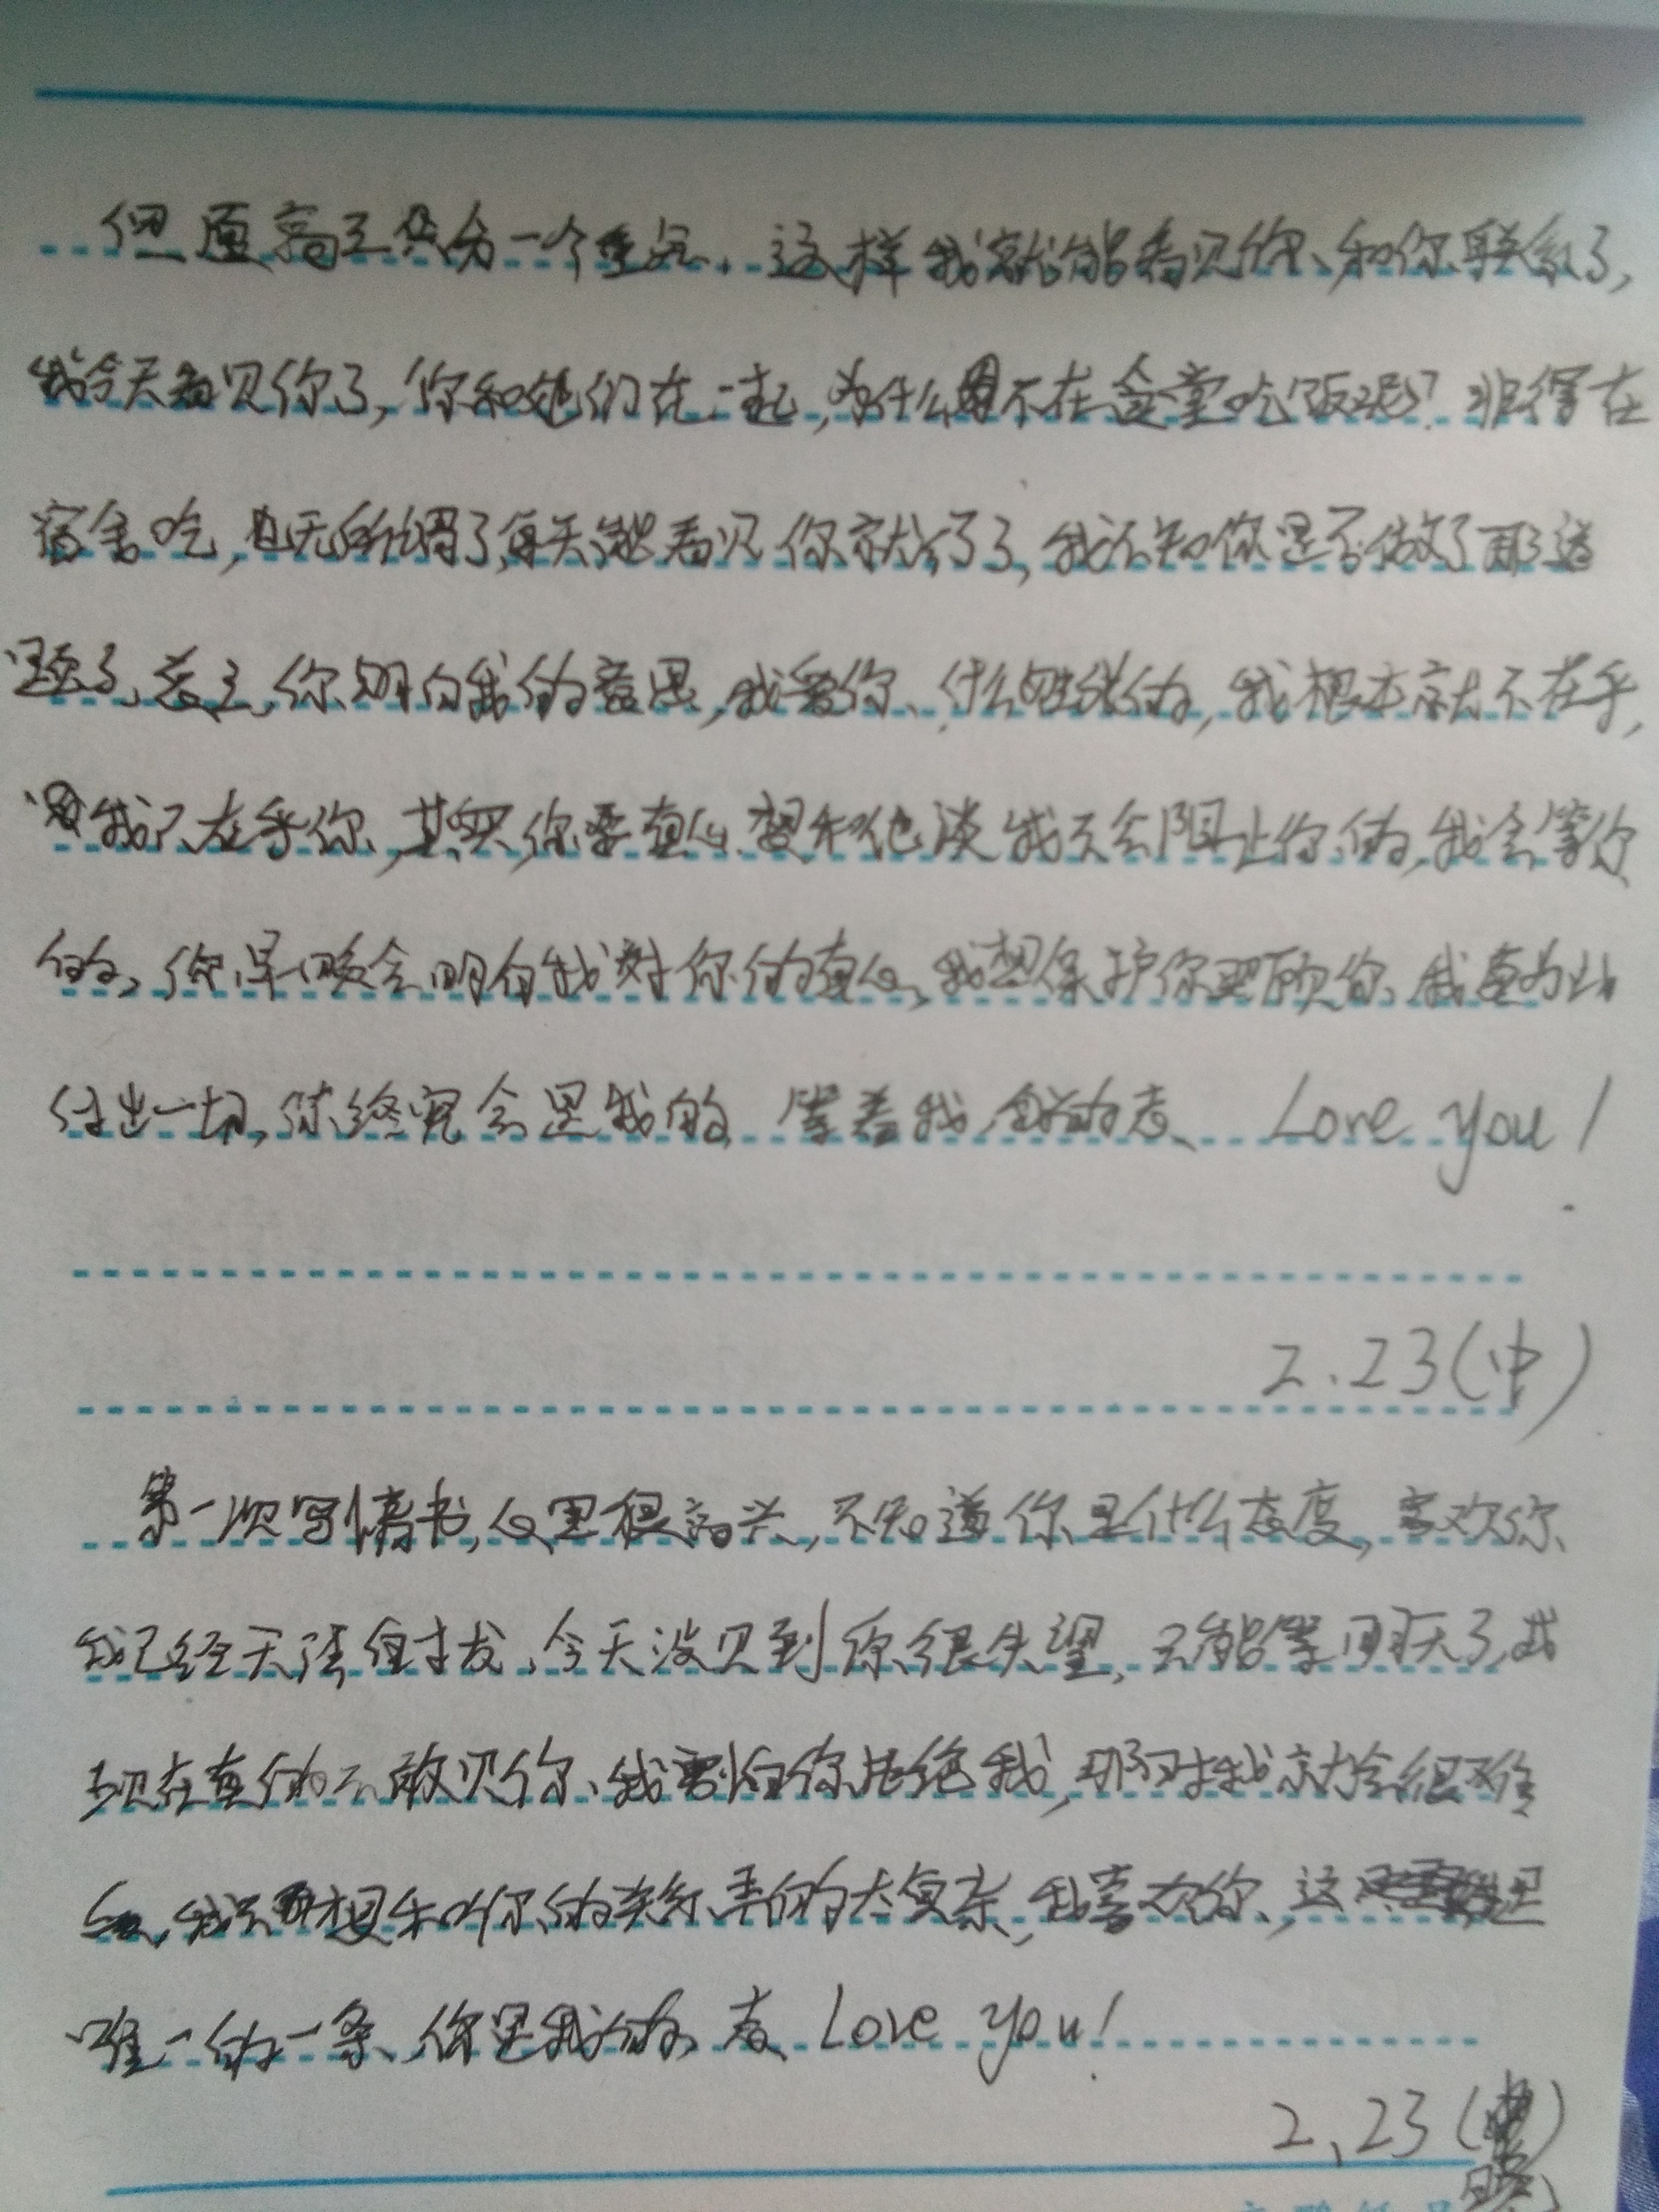 但愿高三只分一个重点，这样我就能看见你、和你联系了，
我今天看见你了，你和她们在一起，为什么不在食堂吃饭呢？非得在
宿舍吃，也无所谓了，每天能看见你就行了，我不知你是否做了那道
题了，你明白我的意思，我爱你、什么的，我根本就不在乎，
我只在乎你，其实，你要真心想和他谈我不会阻止你的，我会等你
的，你早晚会明白我对你的真心，我想保护你照顾你，我愿为此
付出一切，你终究会是我的，等着我，我的 Love you！
2.23(中)
第一次写情书，心里很高兴，不知道你是什么态度，喜欢你
我已经无法自拔，今天没见到你很失望，只能等明天了，我
现在真的不敢见你、我害怕你拒绝我，那时我就会很难
我不想和你的关系弄的太复杂，我喜欢你、这是
唯一的一条、你是我的， Love you！
2.23(晚)